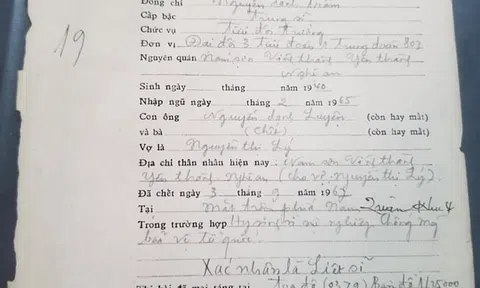 19
Đồng chí Nguyễn danh Năm
Cấp bậc Trung sĩ
Chức vụ Tiểu đội trưởng
Đơn vị Đại đội 3 tiểu đoàn 1 Trung đoàn 803
Nguyên quán Nam sơn Vĩnh thành Yên thành
Nghệ an
Sinh ngày tháng năm 1940
Nhập ngũ ngày tháng 2 năm 1965
Con ông Nguyễn danh Luyện (còn hay mất)
và bà (Chết) (còn hay mất)
Vợ là Nguyễn thị Lý
Địa chỉ thân nhân hiện nay: Nam sơn
Yên thành Nghệ an (cha vợ Nguyễn thị Lý).
Đã chết ngày 3 tháng 9 năm 1967
Tại Mặt trận phía Nam Quân khu 4
Trong trường hợp Hy sinh vì sự nghiệp chống Mỹ
bảo vệ tổ quốc.
Xác nhận là Liệt sĩ
Tọa độ (0379) Bản đồ 1/25000